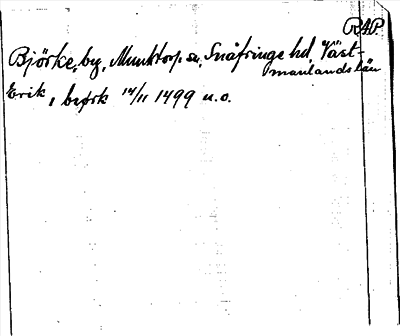 RAP.
Björke, by, Munktorp sn, Snåfringe hd, Väst-
manlands län
Erik, i Björk 14/11 1499 u.o.